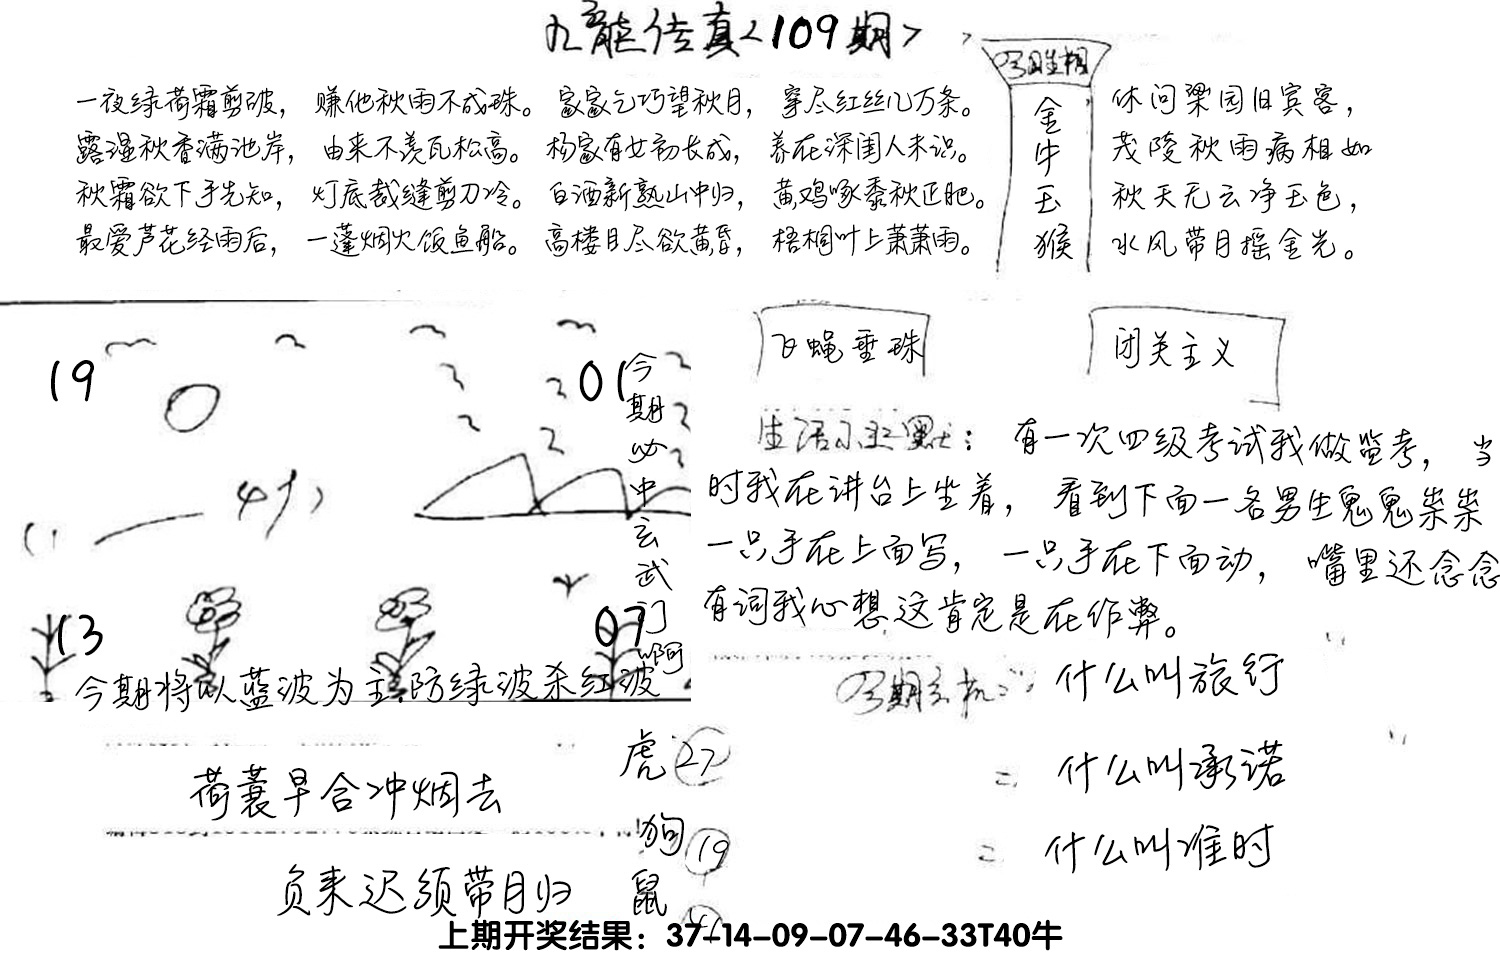 九龍传真<109期>
今日生相
金牛玉猴
一夜绿荷霜剪破，赚他秋雨不成珠。家家乞巧望秋月，穿尽红丝几万条。
露湿秋香满池岸，由来不羡瓦松高。杨家有女初长成，养在深闺人未识。
秋霜欲下手先知，灯底裁缝剪刀冷。白酒新熟山中归，黄鸡啄黍秋正肥。
最爱芦花经雨后，一蓬烟火饭鱼船。高楼目尽欲黄昏，梧桐叶上萧萧雨。
休问梁园旧宾客，
茂陵秋雨病相如
秋天无云净玉色，
水风带月摇金光。
19
01
13
07
今期必中玄武门啊
今期将以蓝波为主防绿波杀红波
飞蝇垂珠
闭关主义
生活小幽默：有一次四级考试我做监考，当
时我在讲台上坐着，看到下面一各男生鬼鬼祟祟
一只手在上面写，一只手在下面动，嘴里还念念
有词我心想这肯定是在作弊。
今期玄机
什么叫旅行
什么叫承诺
什么叫准时
荷蓑早合冲烟去
负耒迟须带月归
虎 27
狗 19
鼠 41
上期开奖结果：37-14-09-07-46-33T40牛